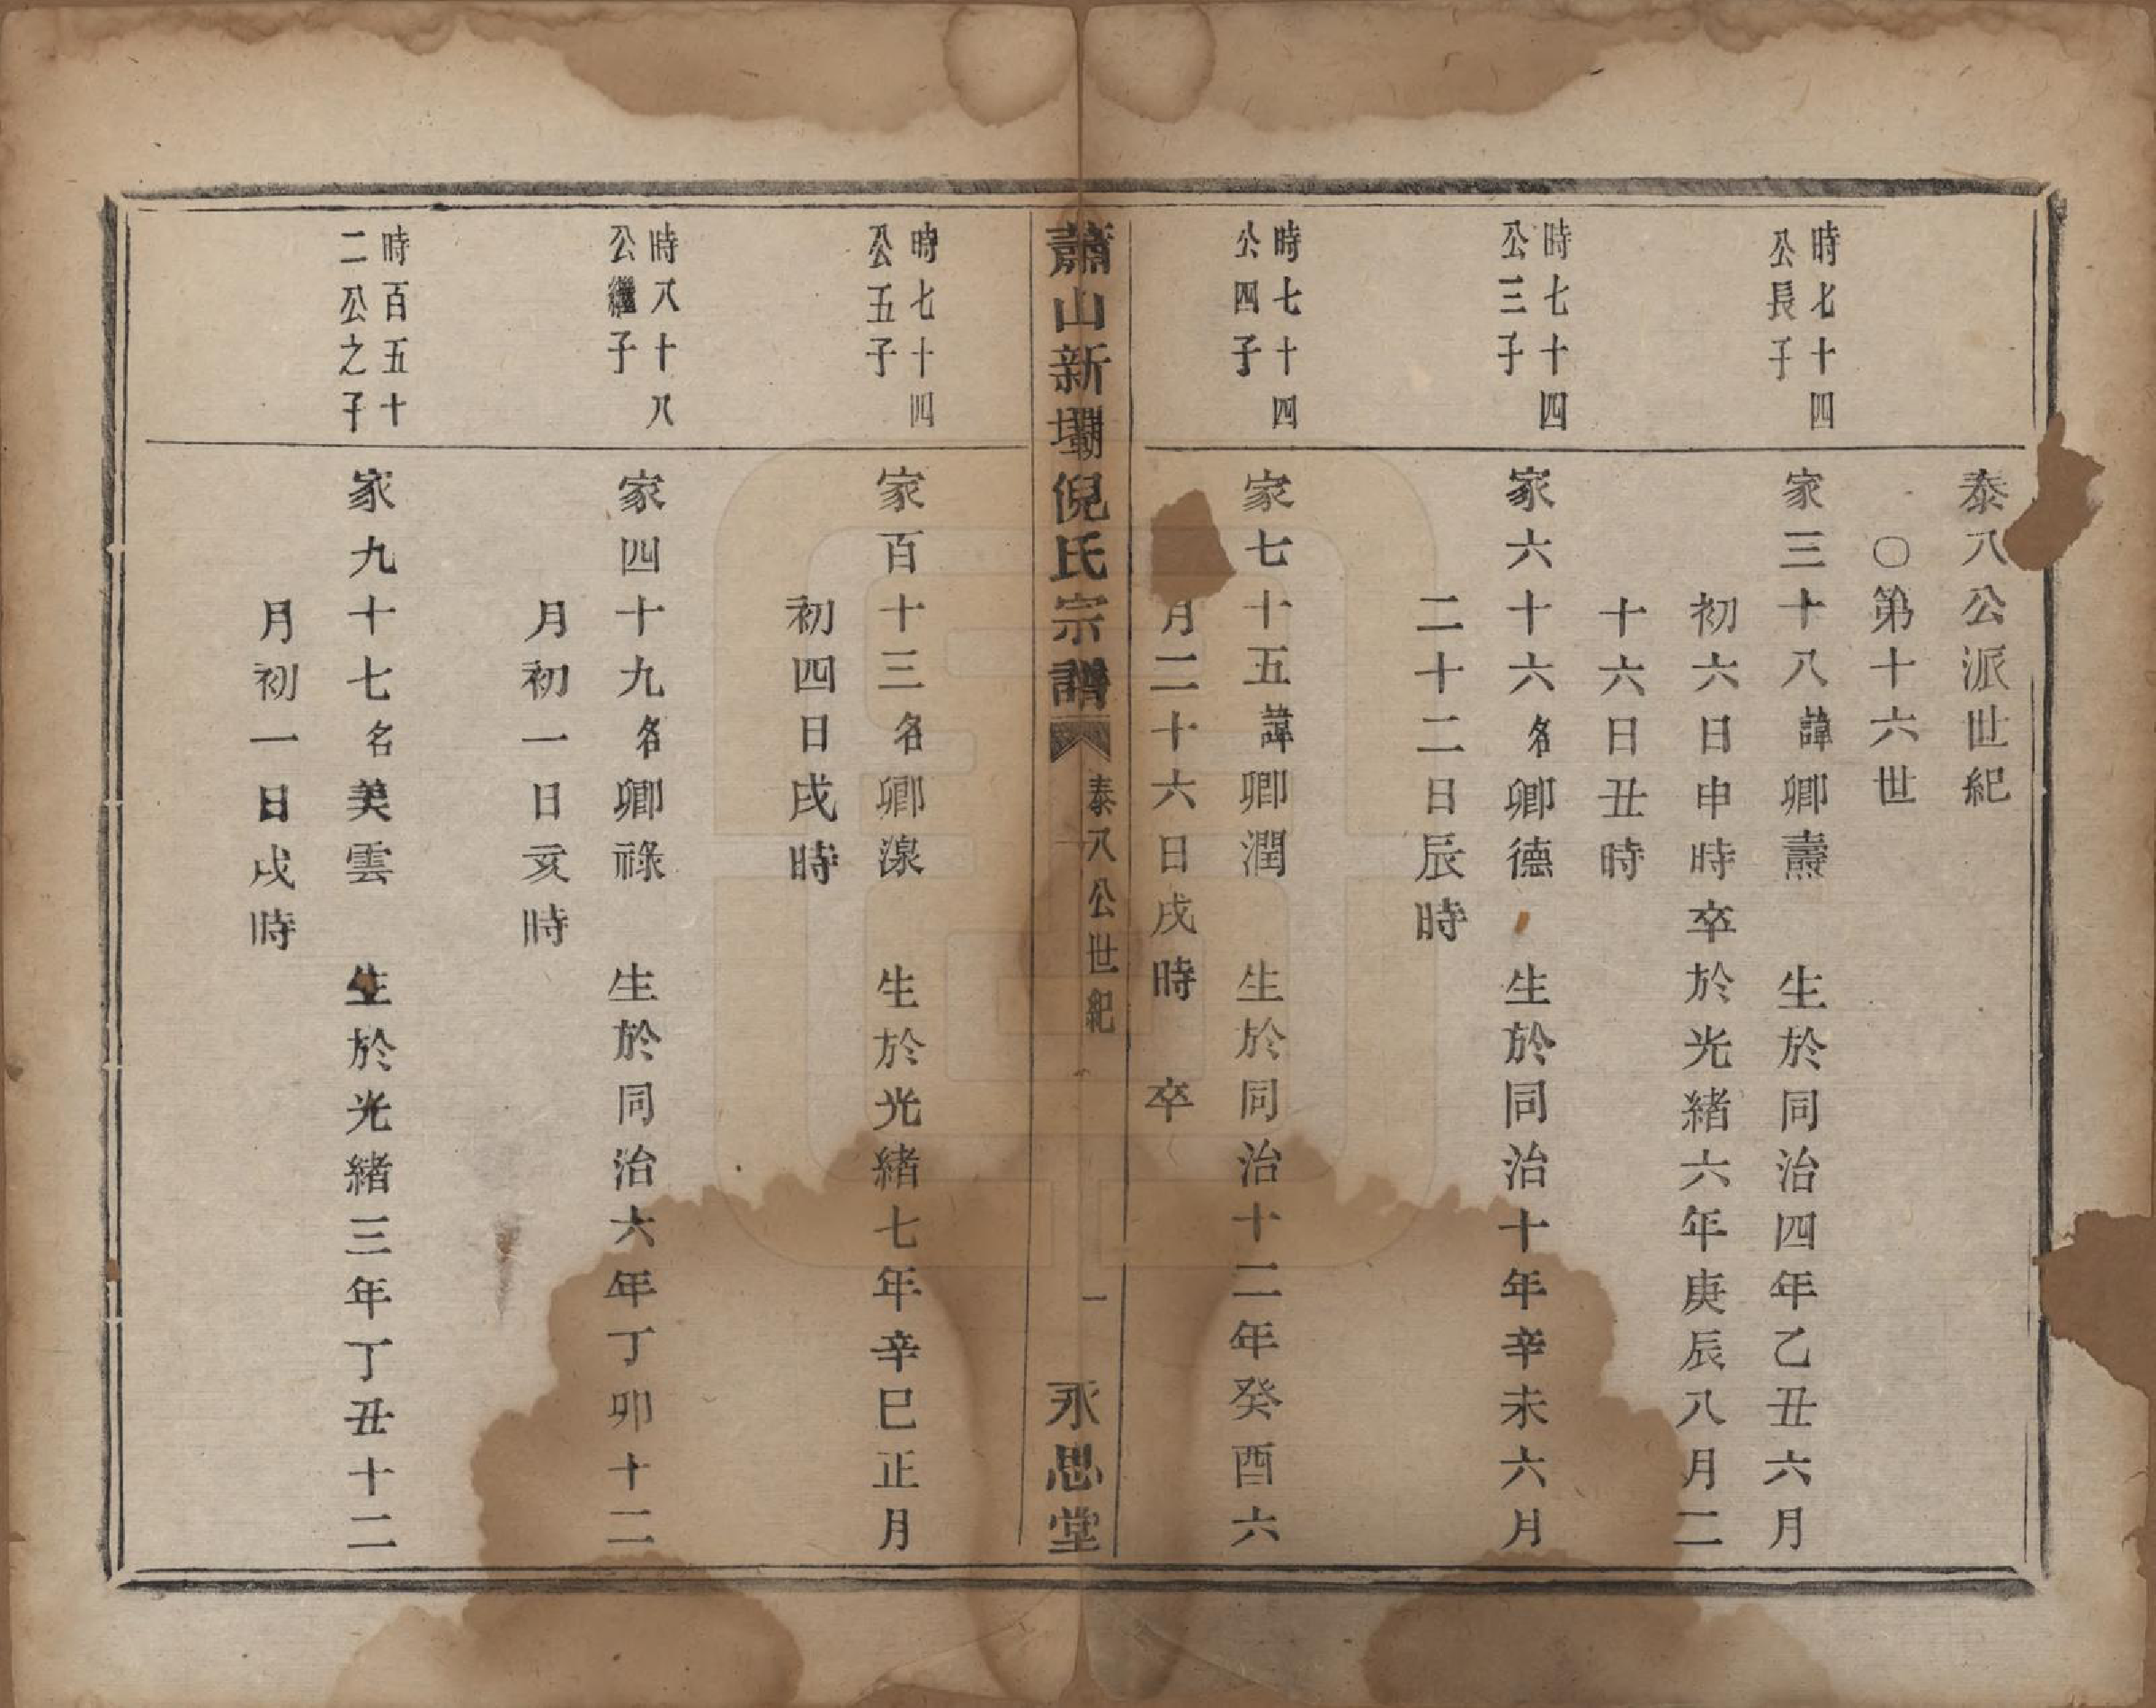 泰八公派世紀
〇第十六世
時七十四
公長子
家三十八諱卿燾 生於同治四年乙丑六月
初六日申時卒於光緒六年庚辰八月二
十六日丑時
時七十四
公三子
家六十六名卿德 生於同治十年辛未六月
二十二日辰時
時七十四
公四子
家七十五諱卿潤 生於同治十二年癸酉六
月二十六日戌時 卒
蕭山新壩倪氏宗譜
泰八公世紀
一
永思堂
時七十四
公五子
家百十三名卿湶 生於光緒七年辛巳正月
初四日戌時
時八十八
公繼子
家四十九名卿祿 生於同治六年丁卯十二
月初一日亥時
時百五十
二公之子
家九十七名美雲 生於光緒三年丁丑十二
月初一日戌時